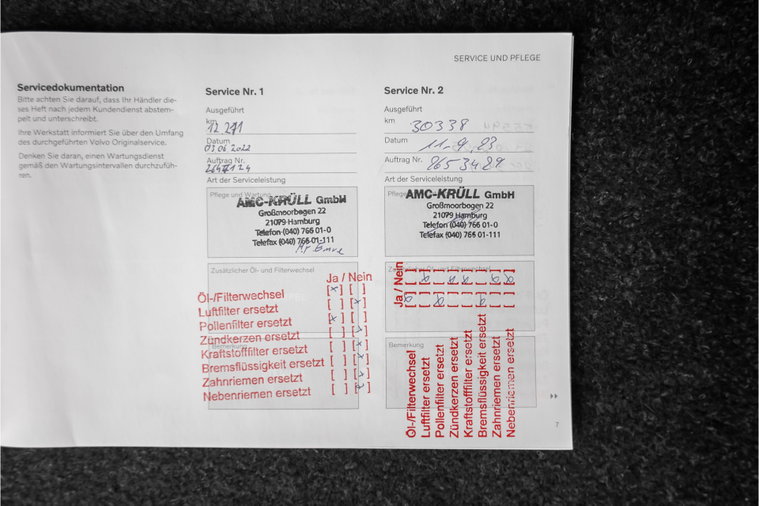 SERVICE UND PFLEGE
Servicedokumentation
Bitte achten Sie darauf, dass Ihr Händler die-
ses Heft nach jedem Kundendienst abstem-
pelt und unterschreibt.
Ihre Werkstatt informiert Sie über den Umfang
des durchgeführten Volvo Originalservice.
Denken Sie daran, einen Wartungsdienst
gemäß den Wartungsintervallen durchzufüh-
ren.
Service Nr. 1
Ausgeführt
km
Datum 03.06.2022
Auftrag Nr.
Art der Serviceleistung
Pflege und Wartung
AMC-KRÜLL GmbH
Großmoorbogen 22
21079 Hamburg
Telefon (040) 766 01-0
Telefax (040) 766 01-111
Zusätzlicher Öl- und Filterwechsel
Ja / Nein
Öl-/Filterwechsel [x] [ ]
Luftfilter ersetzt [ ] [x]
Pollenfilter ersetzt [x] [ ]
Zündkerzen ersetzt [ ] [x]
Kraftstofffilter ersetzt [ ] [x]
Bremsflüssigkeit ersetzt [ ] [x]
Zahnriemen ersetzt [ ] [x]
Nebenriemen ersetzt [ ] [x]
Bemerkung
Service Nr. 2
Ausgeführt
km 30338
Datum 11.9.23
Auftrag Nr. 8653489
Art der Serviceleistung
Pflege
AMC-KRÜLL GmbH
Großmoorbogen 22
21079 Hamburg
Telefon (040) 766 01-0
Telefax (040) 766 01-111
Ja / Nein
Öl-/Filterwechsel
Luftfilter ersetzt
Pollenfilter ersetzt
Zündkerzen ersetzt
Kraftstofffilter ersetzt
Bremsflüssigkeit ersetzt
Zahnriemen ersetzt
Nebenriemen ersetzt
Bemerkung
7